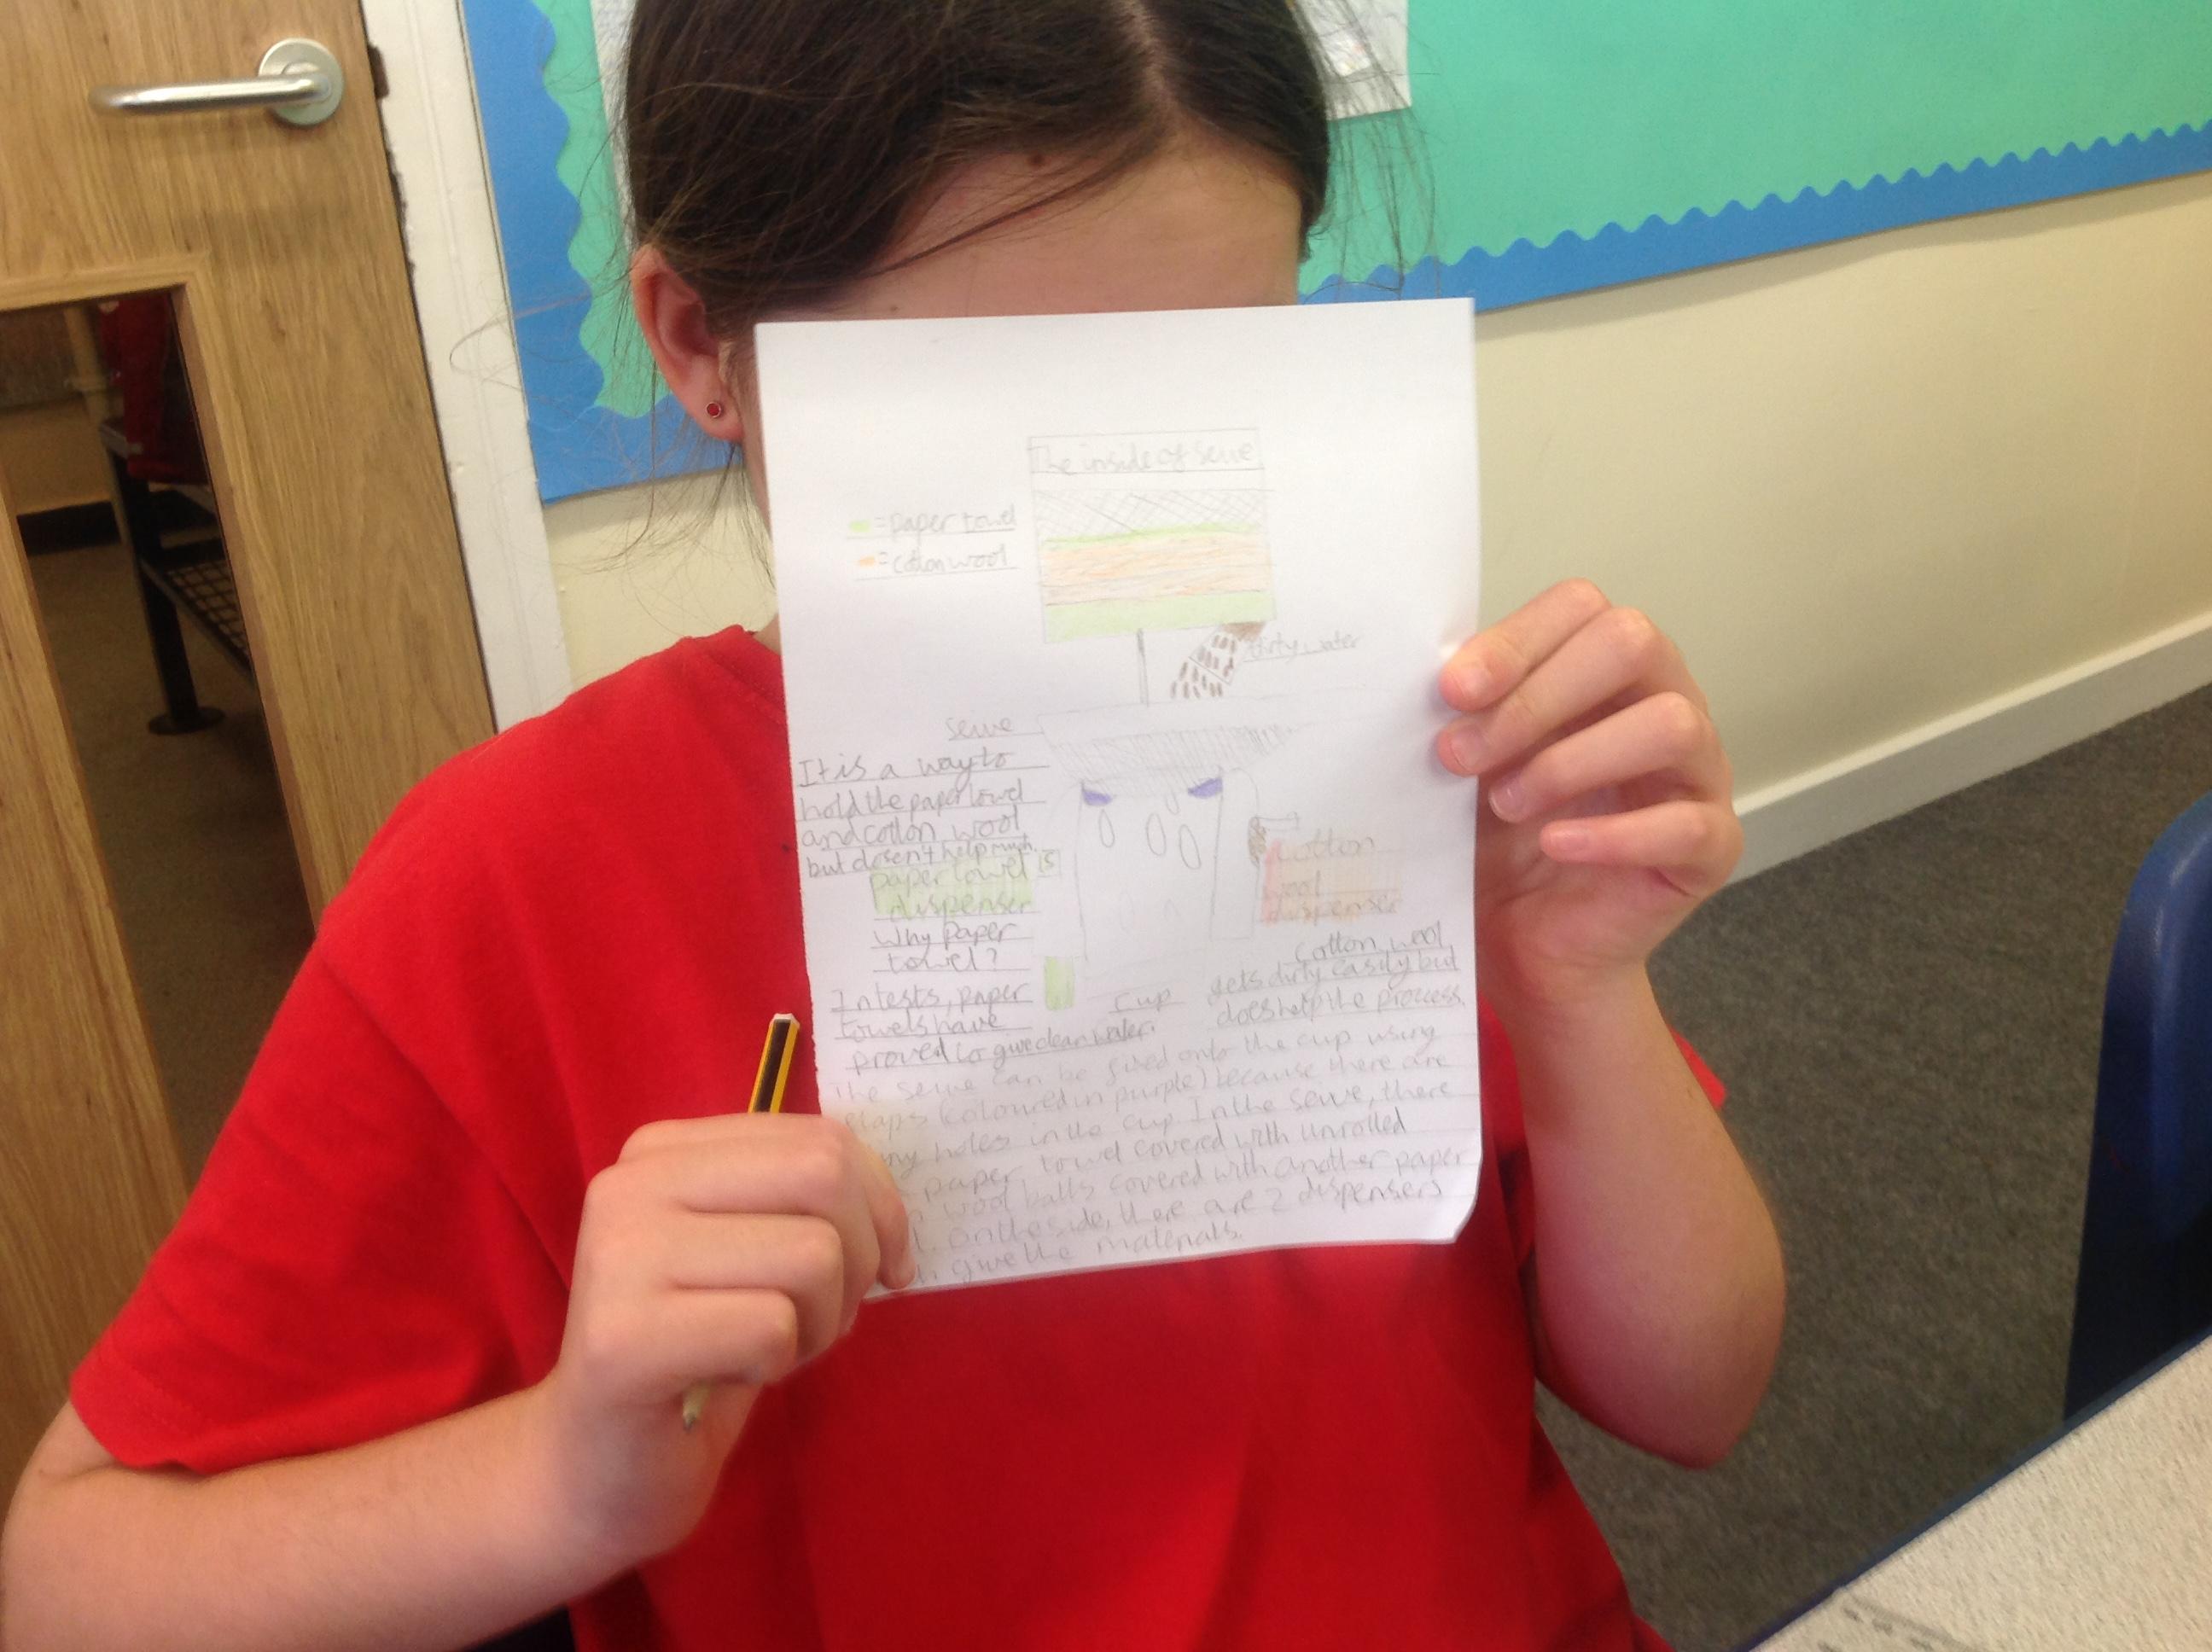 The inside of seive
= paper towel
= cotton wool
dirty water
seive
It is a way to
hold the paper towel
and cotton wool
but doesn't help much.
paper towel
dispenser
Why paper
towel?
In tests, paper
towels have
proved to give clean water.
15
cotton
wool
dispenser
cotton wool
gets dirty easily but
does help the process.
cup
the seive can be fixed onto the cup using
flaps (coloured in purple) because there are
holes in the cup. In the seive, there
paper towel covered with unrolled
wool balls covered with another paper
on the side, there are 2 dispensers
give the materials.